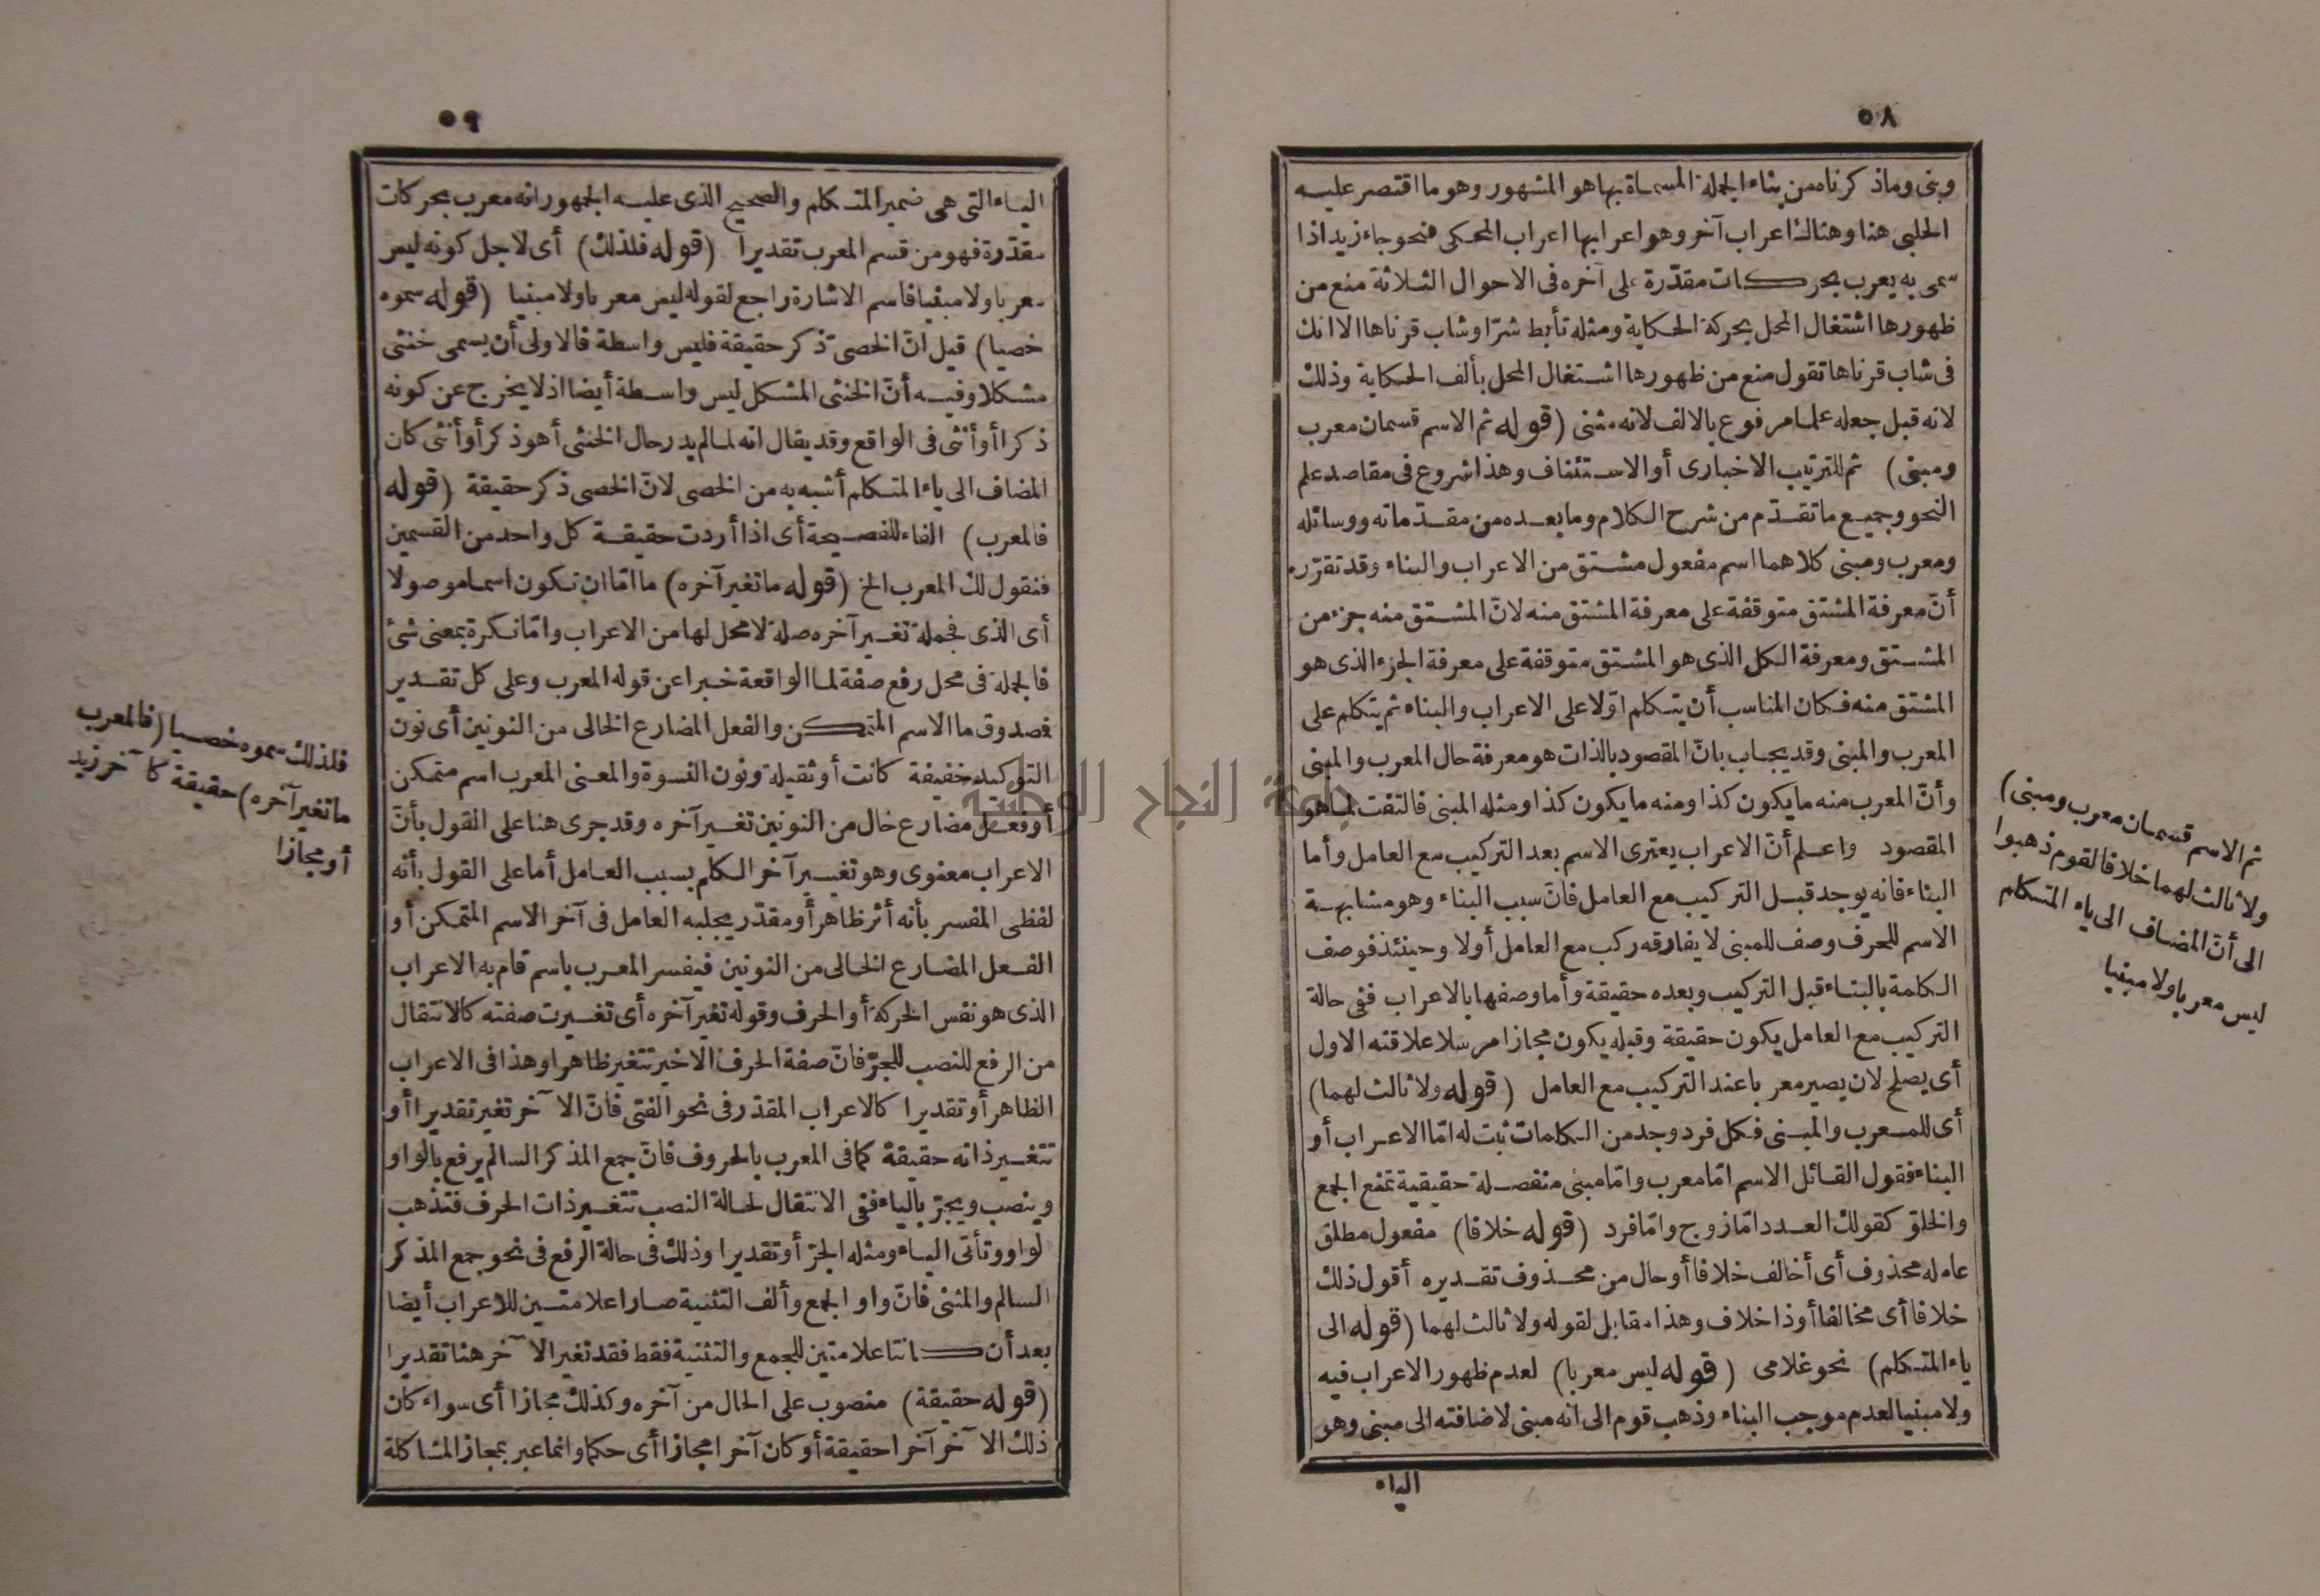 ٥٨
وبنى وماذكرناه من بناء الجملة المسماة بها هو المشهور وهو ما اقتصر عليه
الحلبى هنا وهناك اعراب آخر وهو اعرابها اعراب المحكى فنحو جاء زيد اذا
سمى به يعرب بحركات مقدّرة على آخره فى الاحوال الثلاثة منع من
ظهورها اشتغال المحل بحركة الحكاية ومثله تأبط شرّا وشاب قرناها الا انك
فى شاب قرناها تقول منع من ظهورها اشتغال المحل بألف الحكاية وذلك
لانه قبل جعله علما مرفوع بالالف لانه مثنى (قوله ثم الاسم قسمان معرب
ومبنى) ثم للترتيب الاخبارى أو الاستئناف وهذا شروع فى مقاصد علم
النحو وجميع ما تقدّم من شرح الكلام وما بعده من مقدّماته ووسائله
ومعرب ومبنى كلاهما اسم مفعول مشتق من الاعراب والبناء وقد تقرّر
أنّ معرفة المشتق متوقفة على معرفة المشتق منه لانّ المشتق منه جزء من
المشتق ومعرفة الكل الذى هو المشتق متوقفة على معرفة الجزء الذى هو
المشتق منه فكان المناسب أن يتكلم اوّلا على الاعراب والبناء ثم يتكلم على
المعرب والمبنى وقد يجاب بانّ المقصود بالذات هو معرفة حال المعرب والمبنى
وأنّ المعرب منه ما يكون كذا ومنه ما يكون كذا ومثله المبنى فالتفت لما هو
المقصود واعلم أنّ الاعراب يعترى الاسم بعد التركيب مع العامل وأما
البناء فانه يوجد قبل التركيب مع العامل فانّ سبب البناء وهو مشابهة
الاسم للحرف وصف للمبنى لا يفارقه ركب مع العامل أولا وحينئذ فوصف
الكلمة بالبناء قبل التركيب وبعده حقيقة وأما وصفها بالاعراب ففى حالة
التركيب مع العامل يكون حقيقة وقبله يكون مجازا مرسلا علاقته الاول
أى يصلح لان يصير معربا عند التركيب مع العامل (قوله ولا ثالث لهما)
أى للمعرب والمبنى فكل فرد وجد من الكلمات ثبت له امّا الاعراب أو
البناء فقول القائل الاسم امّا معرب وامّا مبنى منفصلة حقيقية تمنع الجمع
والخلوّ كقولك العدد امّا زوج وامّا فرد (قوله خلافا) مفعول مطلق
عامله محذوف أى أخالف خلافا أو حال من محذوف تقديره أقول ذلك
خلافا أى مخالفا أو ذا خلاف وهذا مقابل لقوله ولا ثالث لهما (قوله الى
ياء المتكلم) نحو غلامى (قوله ليس معربا) لعدم ظهور الاعراب فيه
ولا مبنيا لعدم موجب البناء وذهب قوم الى انه مبنى لاضافته الى مبنى وهو
الياء
ثم الاسم قسمان معرب ومبنى)
ولا ثالث لهما خلافا لقوم ذهبوا
الى أنّ المضاف الى ياء المتكلم
ليس معربا ولا مبنيا
٥٩
الياء التى هى ضمير المتكلم والصحيح الذى عليه الجمهور انه معرب بحركات
مقدّرة فهو من قسم المعرب تقديرا (قوله فلذلك) أى لاجل كونه ليس
معربا ولا مبنيا فاسم الاشارة راجع لقوله ليس معربا ولا مبنيا (قوله سموه
خصيا) قيل انّ الخصىّ ذكر حقيقة فليس واسطة فالاولى أن يسمى خنثى
مشكلا وفيه أنّ الخنثى المشكل ليس واسطة أيضا اذ لا يخرج عن كونه
ذكرا أو أنثى فى الواقع وقد يقال انه لما لم يدر حال الخنثى أهو ذكر أو أنثى كان
المضاف الى ياء المتكلم أشبه به من الخصى لانّ الخصى ذكر حقيقة (قوله
فالمعرب) الفاء للفصيحة أى اذا أردت حقيقة كل واحد من القسمين
فنقول لك المعرب الخ (قوله ما تغير آخره) ما امّا ان تكون اسما موصولا
أى الذى فجملة تغير آخره صلة لا محل لها من الاعراب وامّا نكرة بمعنى شئ
فالجملة فى محل رفع صفة لما الواقعة خبرا عن قوله المعرب وعلى كل تقدير
فصدوق ما الاسم المتمكن والفعل المضارع الخالى من النونين أى نون
التوكيد خفيفة كانت أو ثقيلة ونون النسوة والمعنى المعرب اسم متمكن
أو فعل مضارع خال من النونين تغير آخره وقد جرى هنا على القول بأنّ
الاعراب معنوى وهو تغيير آخر الكلم بسبب العامل أما على القول بأنه
لفظى المفسر بأنه أثر ظاهر أو مقدّر يجلبه العامل فى آخر الاسم المتمكن أو
الفعل المضارع الخالى من النونين فيفسر المعرب باسم قام به الاعراب
الذى هو نفس الحركة أو الحرف وقوله تغير آخره أى تغيرت صفته كالانتقال
من الرفع للنصب للجرّ فانّ صفة الحرف الاخير تتغير ظاهرا وهذا فى الاعراب
الظاهر أو تقديرا كالاعراب المقدّر فى نحو الفتى فانّ الآخر تغير تقديرا أو
تتغير ذاته حقيقة كما فى المعرب بالحروف فانّ جمع المذكر السالم يرفع بالواو
وينصب ويجرّ بالياء ففى الانتقال لحالة النصب تتغير ذات الحرف فتذهب
لواو وتأتى الياء ومثله الجرّ أو تقديرا وذلك فى حالة الرفع فى نحو جمع المذكر
السالم والمثنى فانّ واو الجمع وألف التثنية صارا علامتين للاعراب أيضا
بعد أن كانتا علامتين للجمع والتثنية فقط فقد تغير الآخر هنا تقديرا
(قوله حقيقة) منصوب على الحال من آخره وكذلك مجازا أى سواء كان
ذلك الآخر آخرا حقيقة أو كان آخرا مجازا أى حكما وانما عبر بمجاز المشاكلة
فلذلك سموه خصيا (فالمعرب
ما تغير آخره) حقيقة كآخر زيد
أو مجازا
جامعة النجاح الوطنية